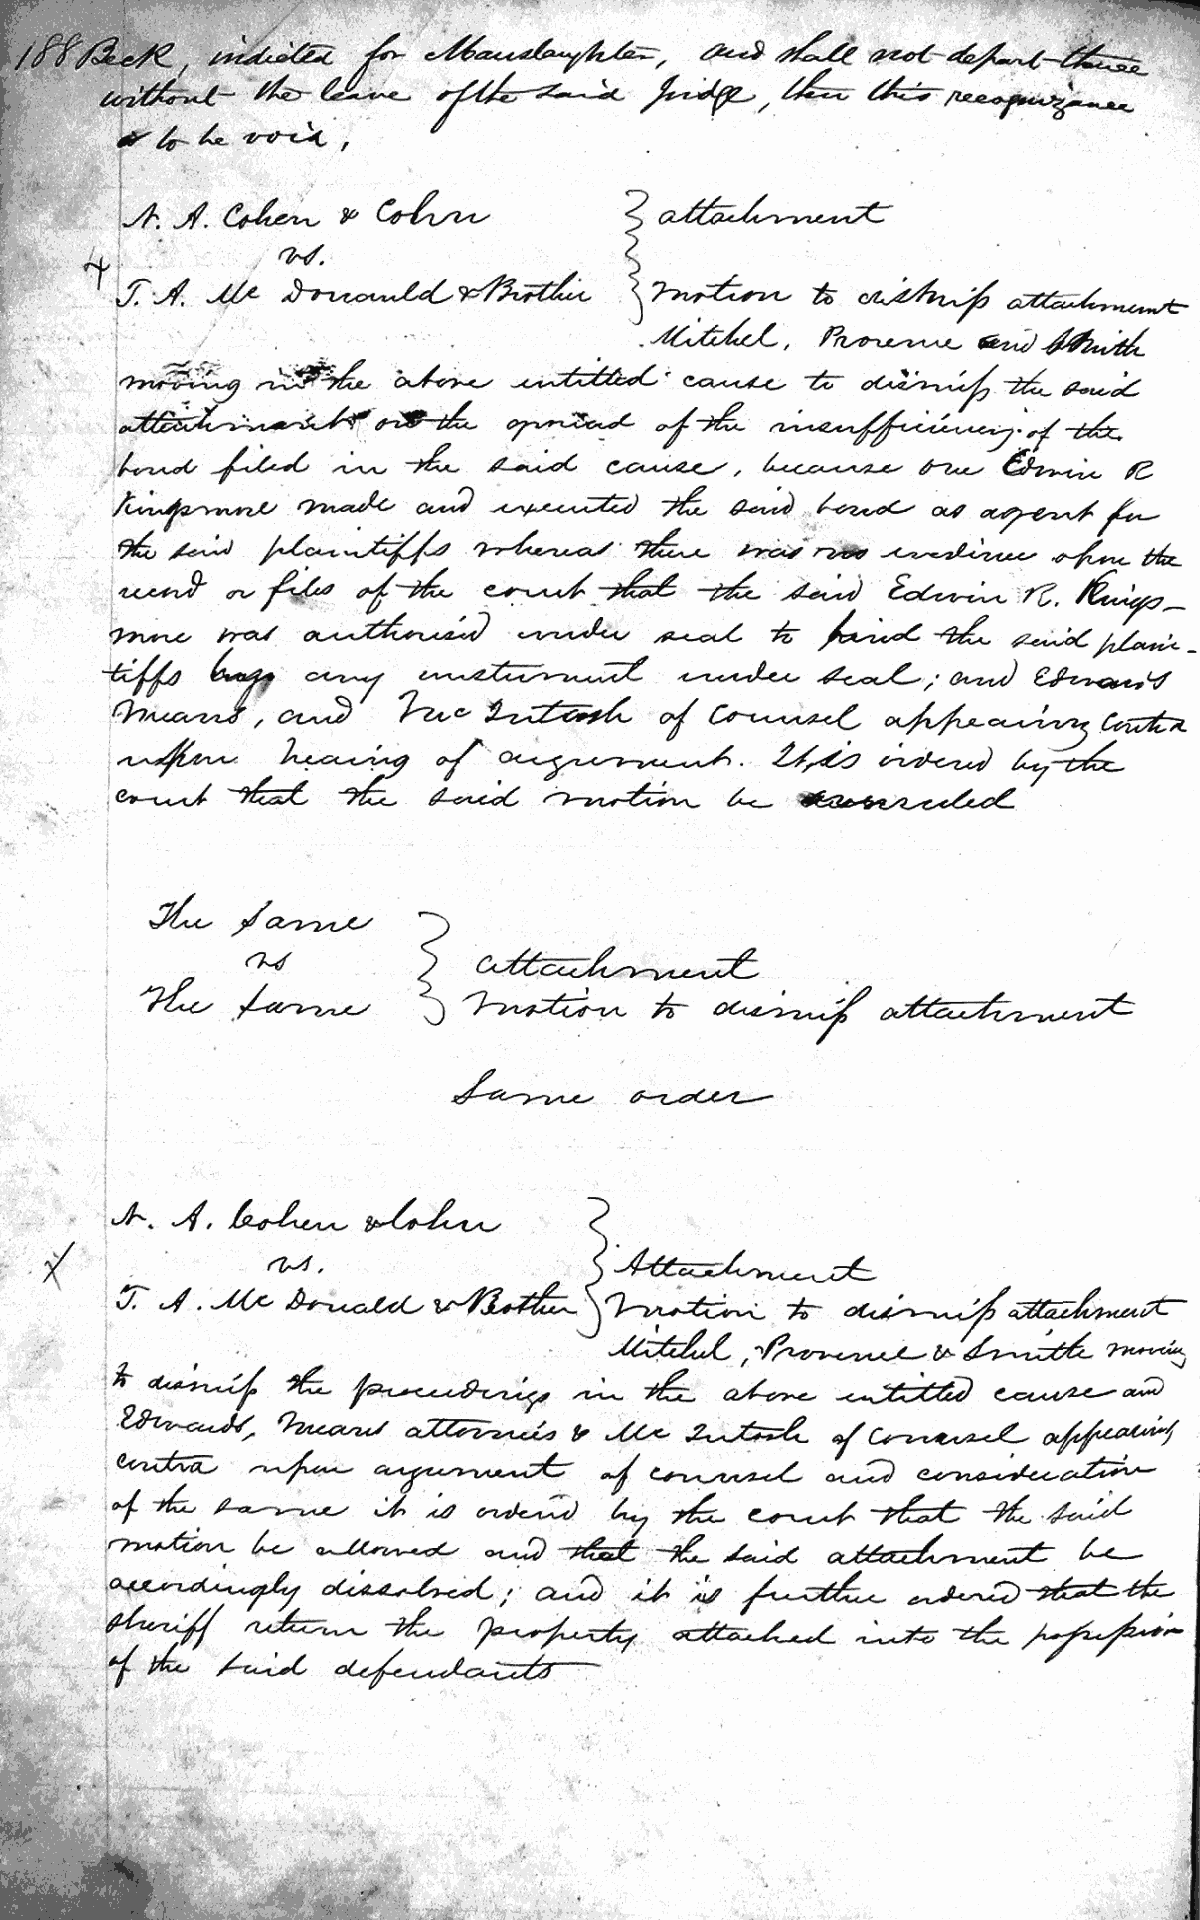 188 Beck, indicted for Manslaughter, and shall not depart thence
without the leave of the said Judge, then this recognizance
to be void,
N. A. Cohen & Cohn } attachment
vs.
T. A. Mc Donauld & Brother } Motion to dismiss attachment
Mitchel, Provence and Smith
moving in the above entitled cause to dismiss the said
attachment on the ground of the insufficiency of the
bond filed in the said cause, because one Edwin R
Kingsmore made and executed the said bond as agent for
the said plaintiffs whereas there was no evidence upon the
record or files of the court that the said Edwin R. Kings-
more was authorised under seal to bind the said plain-
tiffs by any instrument under seal; and Edwards
Means, and Mc Intosh of Counsel appearing contra
upon hearing of argument. It is ordered by the
court that the said motion be overruled
The Same
vs } attachment
The Same } Motion to dismiss attachment
Same order
N. A. Cohen & Cohn
vs. } Attachment
T. A. Mc Donald & Brother } Motion to dismiss attachment
Mitchel, Provence & Smith moving
to dismiss the proceedings in the above entitled cause and
Edwards, Means attorneis & Mc Intosh of Counsel appearing
contra upon argument of counsel and consideration
of the same it is ordered by the court that the said
motion be allowed and that the said attachment be
accordingly dissolved; and it is further ordered that the
sheriff return the property attached into the possession
of the said defendants